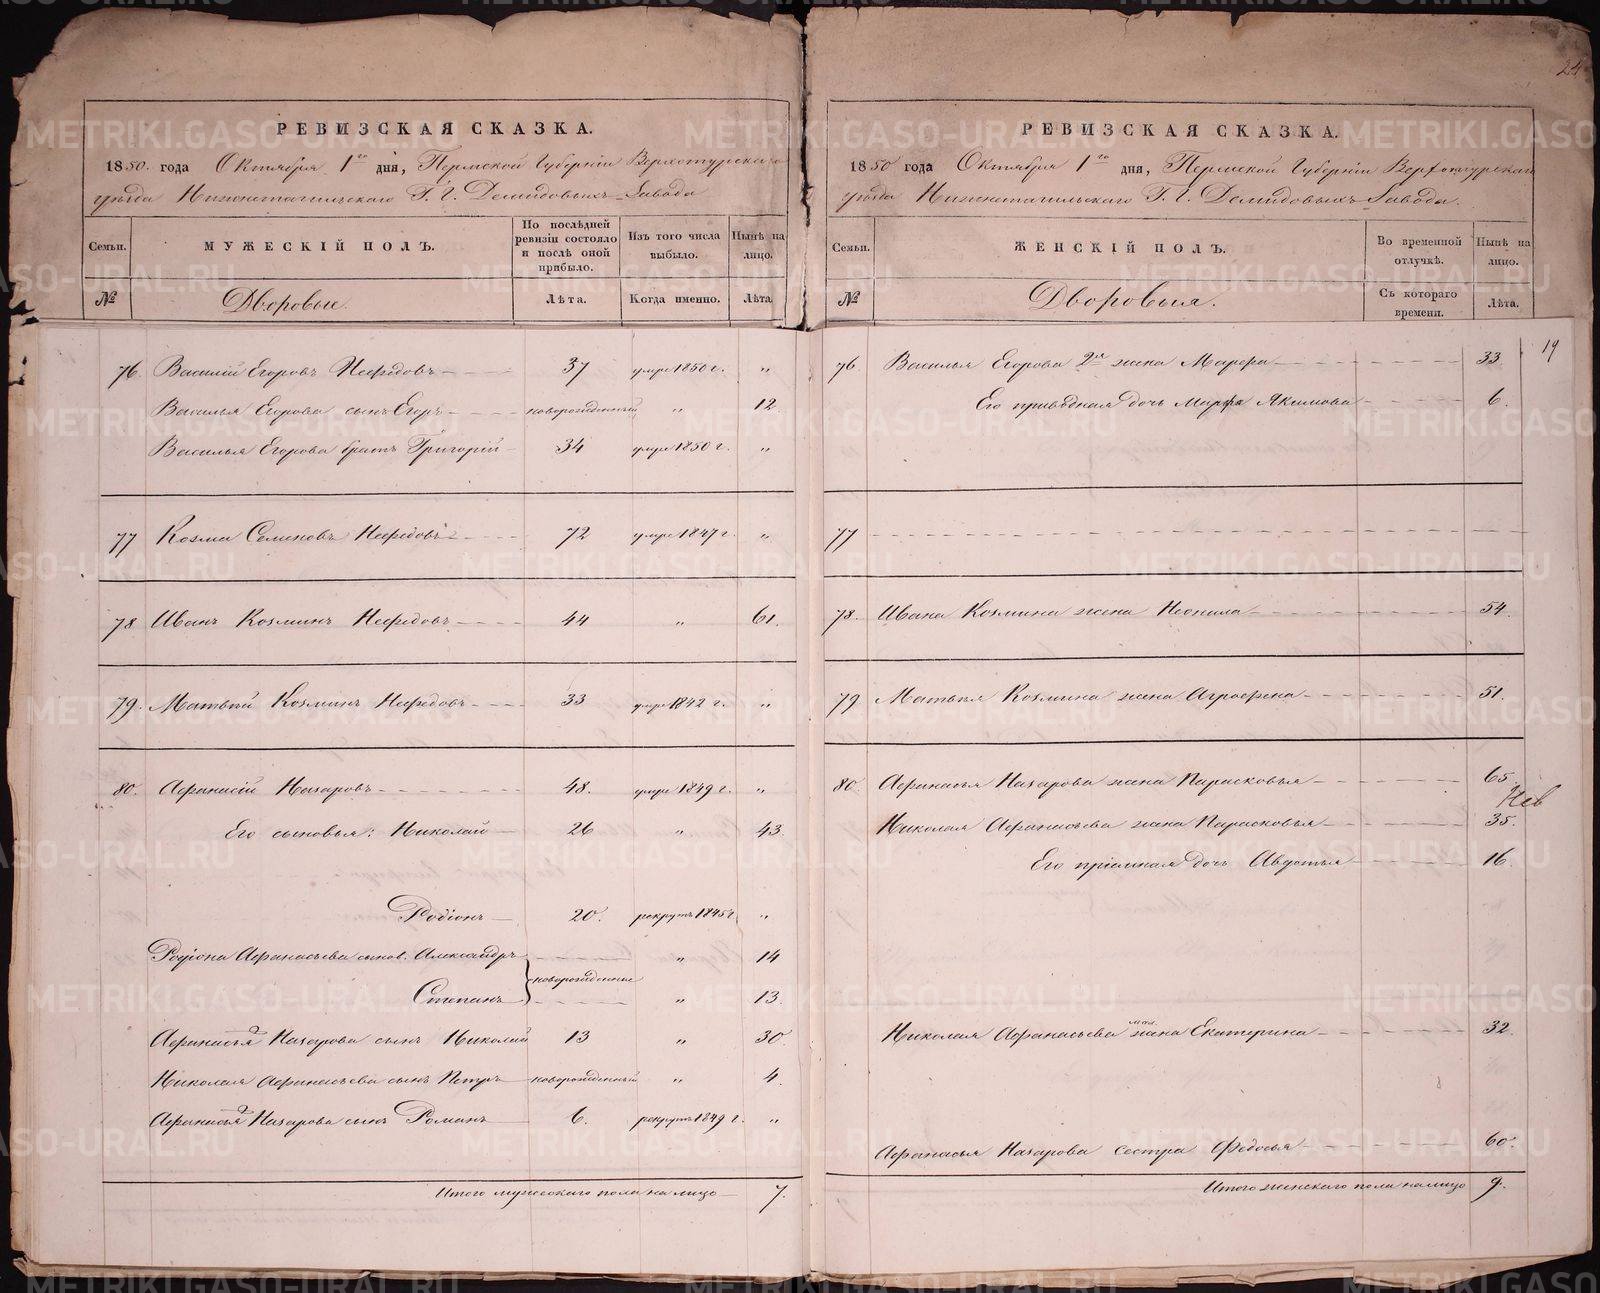 24
РЕВИЗСКАЯ СКАЗКА.
1850. года Октября 1го дня, Пермской Губерніи Верхотурскаго
уѣзда Нижнетагильскаго Г. Г. Демидовыхъ Завода
Семьи.
МУЖЕСКІЙ ПОЛЪ.
По послѣдней ревизіи состояло и послѣ оной прибыло.
Изъ того числа выбыло.
Нынѣ на лицо.
№
Дворовые.
Лѣта.
Когда именно.
Лѣта
76. Василій Егоровъ Нефедовъ 37 умре 1850 г. „
Василья Егорова сынъ Егоръ новорожденный „ 12.
Василья Егорова братъ Григорій 34 умре 1850 г. „
77 Козма Семеновъ Нефедовъ 72 умре 1847 г. „
78. Иванъ Козминъ Нефедовъ 44 „ 61.
79. Матвѣй Козминъ Нефедовъ 33 умре 1842 г. „
80. Афанасій Назаровъ 48. умре 1849 г. „
Его сыновья: Николай 26 „ 43.
Родіонъ 20. рекрутъ 1845 г. „
Родіона Афанасьева сынов. Александръ „ 14
новорожденные
Степанъ „ 13.
Афанасья 2 Назарова сынъ Николай 13 „ 30.
Николая Афанасьева сынъ Петръ новорожденный „ 4.
Афанасья 2 Назарова сынъ Романъ 6. рекрутъ 1849 г. „
Итого мужескаго пола на лицо 7.
РЕВИЗСКАЯ СКАЗКА.
1850 года Октября 1го дня, Пермской Губерніи Верхотурскаго
уѣзда Нижнетагильскаго Г. Г. Демидовыхъ Завода.
Семьи.
ЖЕНСКІЙ ПОЛЪ.
Во временной отлучкѣ.
Нынѣ на лицо.
№
Дворовыя.
Съ котораго времени.
Лѣта.
19
76 Василья Егорова 2я жена Марфа 33.
Его приведная дочь Марфа Якимова 6.
77
78. Ивана Козмина жена Неонила 54.
79 Матвѣя Козмина жена Аграфена 51.
80. Афанасья Назарова жена Парасковья 65.
Николая Афанасьева жена Парасковья 35.
Его пріемная дочь Авдотья 16.
Николая Афанасьева жена Екатерина 32.
Афанасья Назарова сестра Федосья 60.
Итого женскаго пола на лицо 9.
METRIKI.GASO-URAL.RU